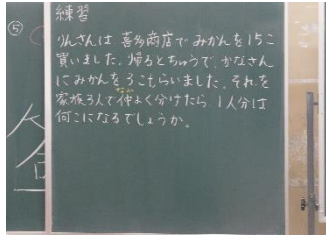 ⑤
練習
りんさんは 喜多商店で みかんを 15こ
買いました。帰ると中うで、かなさん
にみかんを 3こもらいました。それを
家族3人で仲よく分けたら、1人分は
なか
何こになるでしょうか。